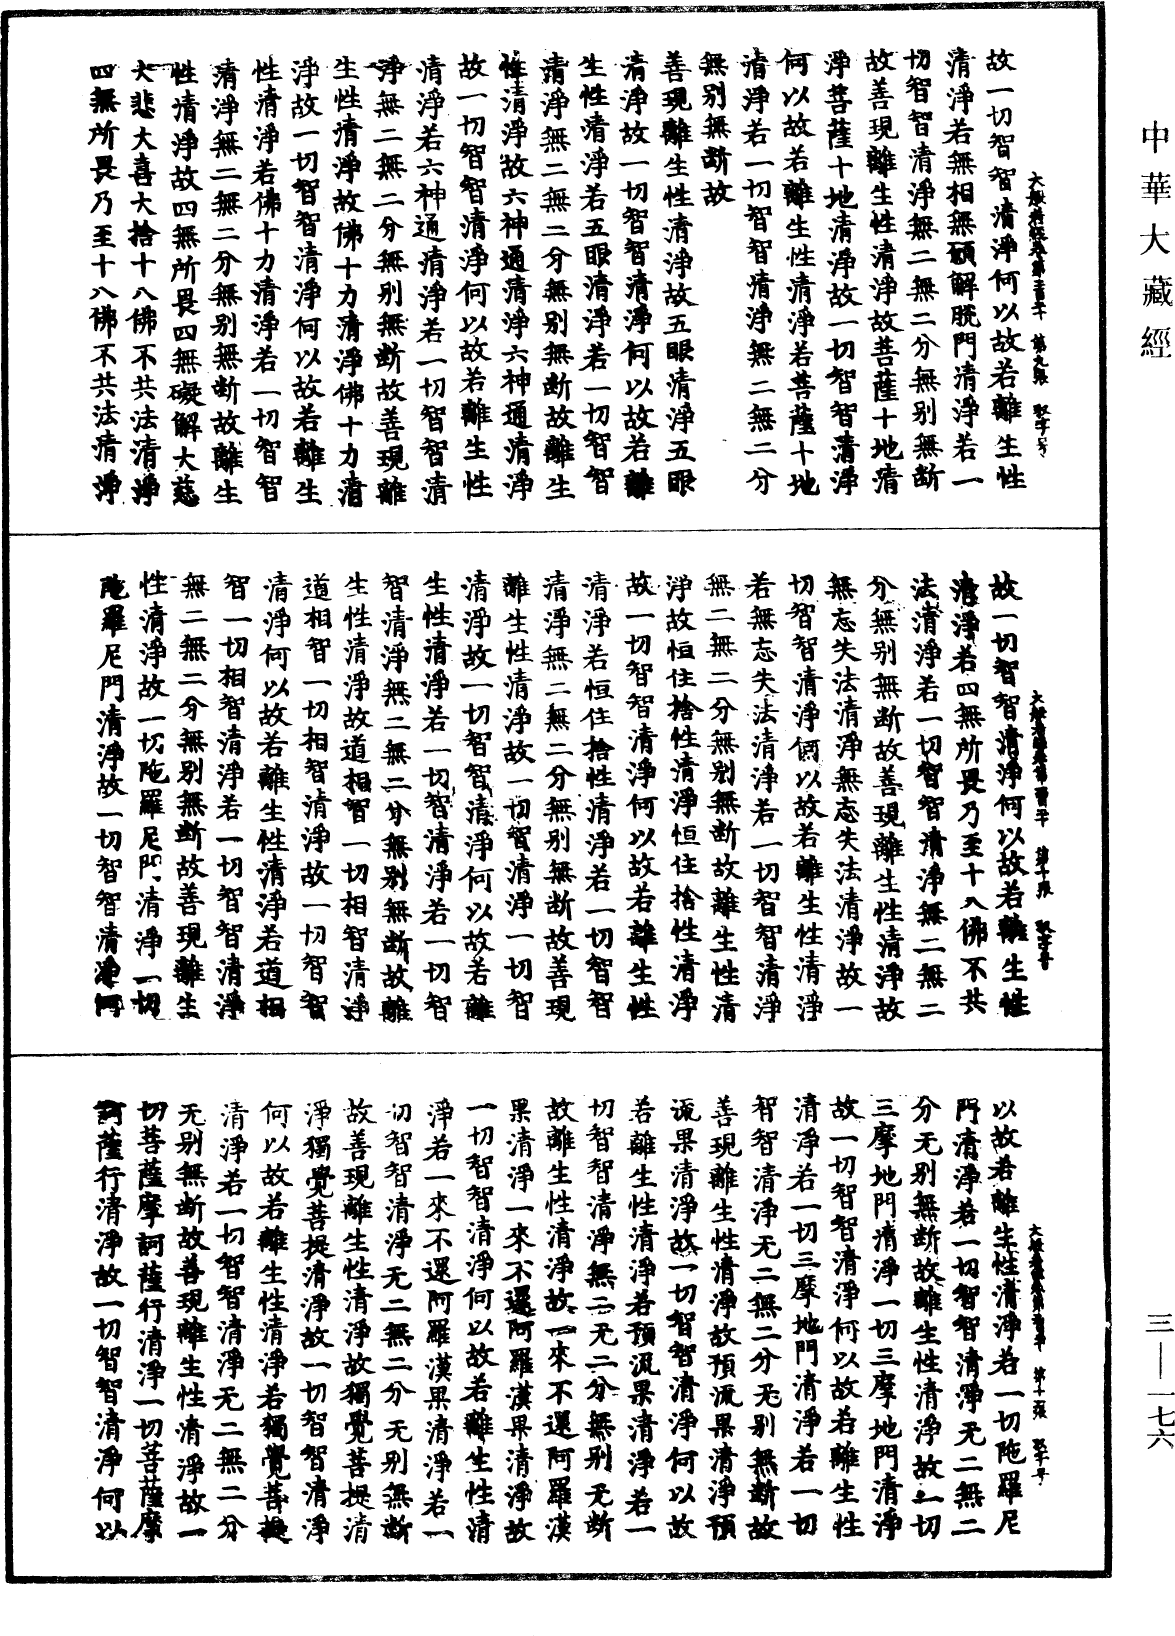 中華大藏經
故一切智智清淨何以故若離生性
清淨若無相無願解脫門清淨若一
切智智清淨無二無二分無別無斷
故善現離生性清淨故菩薩十地清
淨菩薩十地清淨故一切智智清淨
何以故若離生性清淨若菩薩十地
清淨若一切智智清淨無二無二分
無別無斷故
善現離生性清淨故五眼清淨五眼
清淨故一切智智清淨何以故若離
生性清淨若五眼清淨若一切智智
清淨無二無二分無別無斷故離生
性清淨故六神通清淨六神通清淨
故一切智智清淨何以故若離生性
清淨若六神通清淨若一切智智清
淨無二無二分無別無斷故善現離
生性清淨故佛十力清淨佛十力清
淨故一切智智清淨何以故若離生
性清淨若佛十力清淨若一切智智
清淨無二無二分無別無斷故離生
性清淨故四無所畏四無礙解大慈
大悲大喜大捨十八佛不共法清淨
四無所畏乃至十八佛不共法清淨
故一切智智清淨何以故若離生性
清淨若四無所畏乃至十八佛不共
法清淨若一切智智清淨無二無二
分無別無斷故善現離生性清淨故
無忘失法清淨無忘失法清淨故一
切智智清淨何以故若離生性清淨
若無忘失法清淨若一切智智清淨
無二無二分無別無斷故離生性清
淨故恒住捨性清淨恒住捨性清淨
故一切智智清淨何以故若離生性
清淨若恒住捨性清淨若一切智智
清淨無二無二分無別無斷故善現
離生性清淨故一切智清淨一切智
清淨故一切智智清淨何以故若離
生性清淨若一切智清淨若一切智
智清淨無二無二分無別無斷故離
生性清淨故道相智一切相智清淨
道相智一切相智清淨故一切智智
清淨何以故若離生性清淨若道相
智一切相智清淨若一切智智清淨
無二無二分無別無斷故善現離生
性清淨故一切陁羅尼門清淨一切
陁羅尼門清淨故一切智智清淨何
以故若離生性清淨若一切陁羅尼
門清淨若一切智智清淨无二無二
分无別無斷故離生性清淨故一切
三摩地門清淨一切三摩地門清淨
故一切智智清淨何以故若離生性
清淨若一切三摩地門清淨若一切
智智清淨无二無二分无別無斷故
善現離生性清淨故預流果清淨預
流果清淨故一切智智清淨何以故
若離生性清淨若預流果清淨若一
切智智清淨無二无二分無別无斷
故離生性清淨故一來不還阿羅漢
果清淨一來不還阿羅漢果清淨故
一切智智清淨何以故若離生性清
淨若一來不還阿羅漢果清淨若一
切智智清淨无二無二分无別無斷
故善現離生性清淨故獨覺菩提清
淨獨覺菩提清淨故一切智智清淨
何以故若離生性清淨若獨覺菩提
清淨若一切智智清淨无二無二分
无別無斷故善現離生性清淨故一
切菩薩摩訶薩行清淨一切菩薩摩
訶薩行清淨故一切智智清淨何以
三—一七六